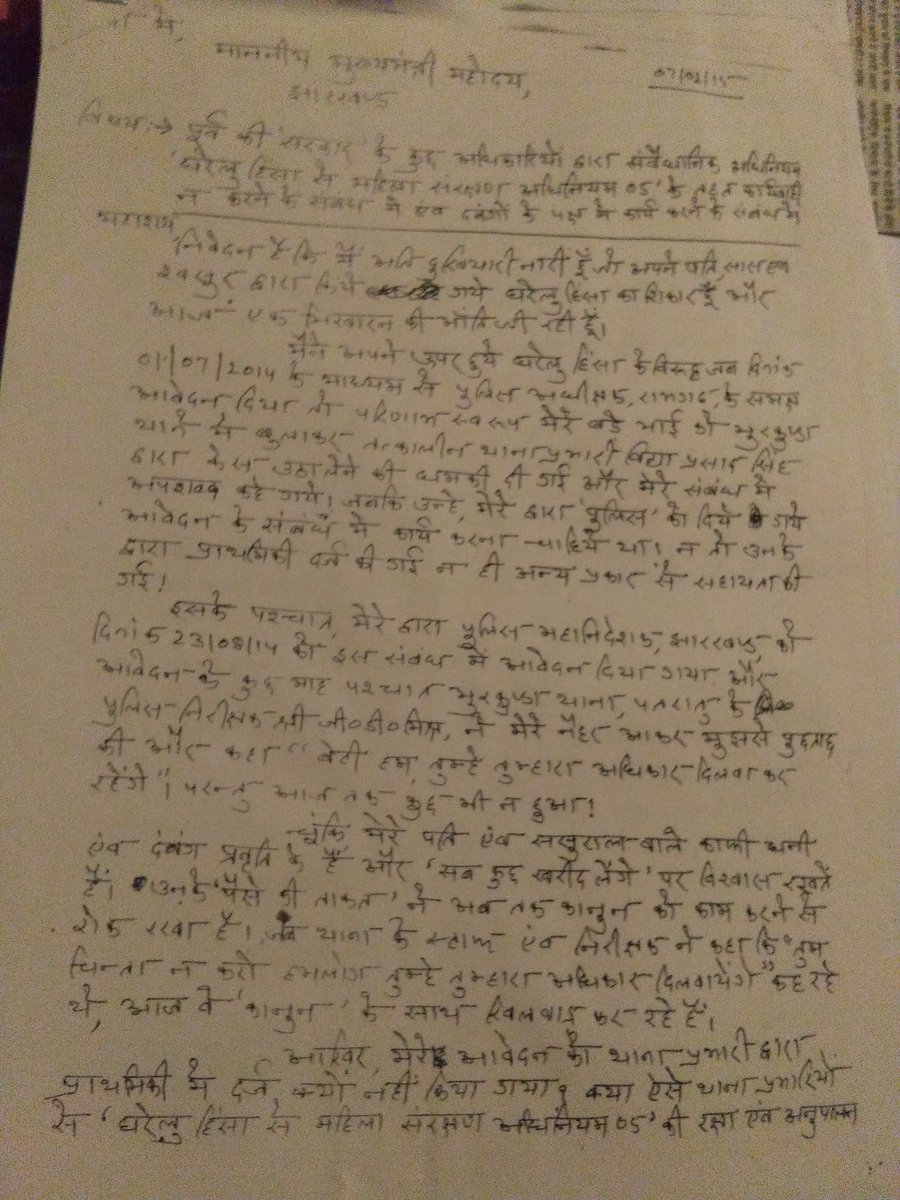 में,
माननीय मुख्यमंत्री महोदय,
07/02/15
झारखण्ड
विषय:→ पूर्व की 'सरकार' के कुछ अधिकारियों द्वारा संवैधानिक अधिनियम
'घरेलु हिंसा से महिला संरक्षण अधिनियम 05' के तहत कार्यवाही
न करने के संबंध में एंव दबंगों के पक्ष में कार्य करने के संबंध में
महाशय,
निवेदन है कि मैं अति दुखियारी नारी हूँ जो अपने पति, सास एवं
श्वसुर द्वारा किये गये घरेलु हिंसा का शिकार हूँ और
आज एक भिखारन की भाँति जी रही हूँ।
मैंने अपने उपर हुये घरेलु हिंसा के विरूद्ध जब दिनांक
01/07/2014 के माध्यम से पुलिस अधीक्षक, रामगढ़, के समक्ष
आवेदन दिया तो परिणाम स्वरूप मेरे बडे भाई को भुरकुण्डा
थाने में बुलाकर तत्कालीन थाना प्रभारी विद्या प्रसाद सिंह
द्वारा केस उठा लेने की धमकी दी गई और मेरे संबंध में
अपशब्द कहे गये। जबकि उन्हे, मेरे द्वारा 'पुलिस' को दिये गये
आवेदन के संबंध में कार्य करना चाहिये था। न तो उनके
द्वारा प्राथमिकी दर्ज की गई न ही अन्य प्रकार से सहायता की
गई।
इसके पश्चात, मेरे द्वारा पुलिस महानिदेशक, झारखण्ड, को
दिनांक 23/08/14 को इस संबंध में आवेदन दिया गया और
आवेदन के कुछ माह पश्चात भुरकुण्डा थाना, पतरातु के
पुलिस निरीक्षक श्री जी०डी०मिश्र, ने मेरे नैहर आकर मुझसे पुछताछ
की और कहा "बेटी हम, तुम्हे तुम्हारा अधिकार दिलवाकर
रहेंगे"। परन्तु आज तक कुछ भी न हुआ!
चूंकि मेरे पति एंव ससुराल वाले काफी धनी
एंव दबंग प्रवृति के हैं और 'सब कुछ खरीद लेंगे' पर विश्वास रखते
हैं। उनके 'पैसे की ताकत' ने अब तक कानुन को काम करने से
रोक रखा है। जब थाना के स्टाफ एंव निरीक्षक ने कहा कि "तुम
चिन्ता न करो हमलोग तुम्हे तुम्हारा अधिकार दिलवायेंगे" कह रहे
थे, आज वे 'कानुन' के साथ खिलवाड़ कर रहे हैं।
आखिर, मेरे आवेदन को थाना प्रभारी द्वारा
प्राथमिकी में दर्ज, क्यों नहीं किया गया? क्या ऐसे थाना प्रभारियों
से 'घरेलु हिंसा से महिला संरक्षण अधिनियम 05' की रक्षा एंव अनुपालन